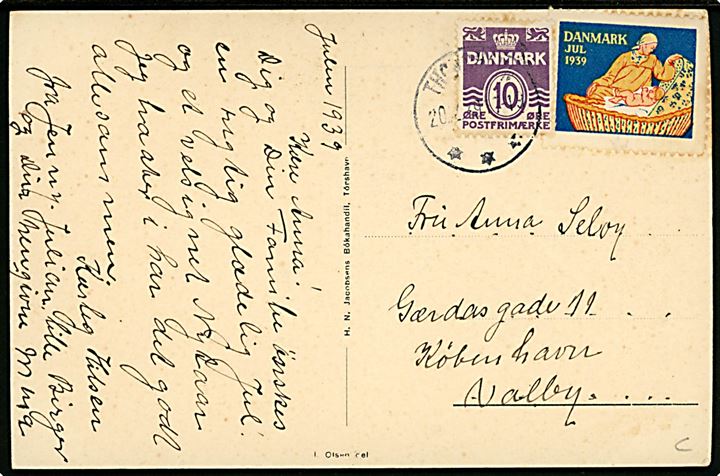 Julen 1939
Kære Anna!
Dig og Din Familie ønskes
en rigtig glædelig Jul!
og et velsignet Nytaar
jeg haaber i har det godt
allesans men.
Kærlig Hilsen
fra Jenny, Julian, lille Birger
og Din
H. N. Jacobsens Bókahandil, Tórshavn
I. Olsen del
THO
20.
DANMARK
10
ØRE ØRE
POSTFRIMÆRKE
DANMARK
JUL
1939
Frú Anna Selvy
Gærdasgade 11.
København
Valby.
C